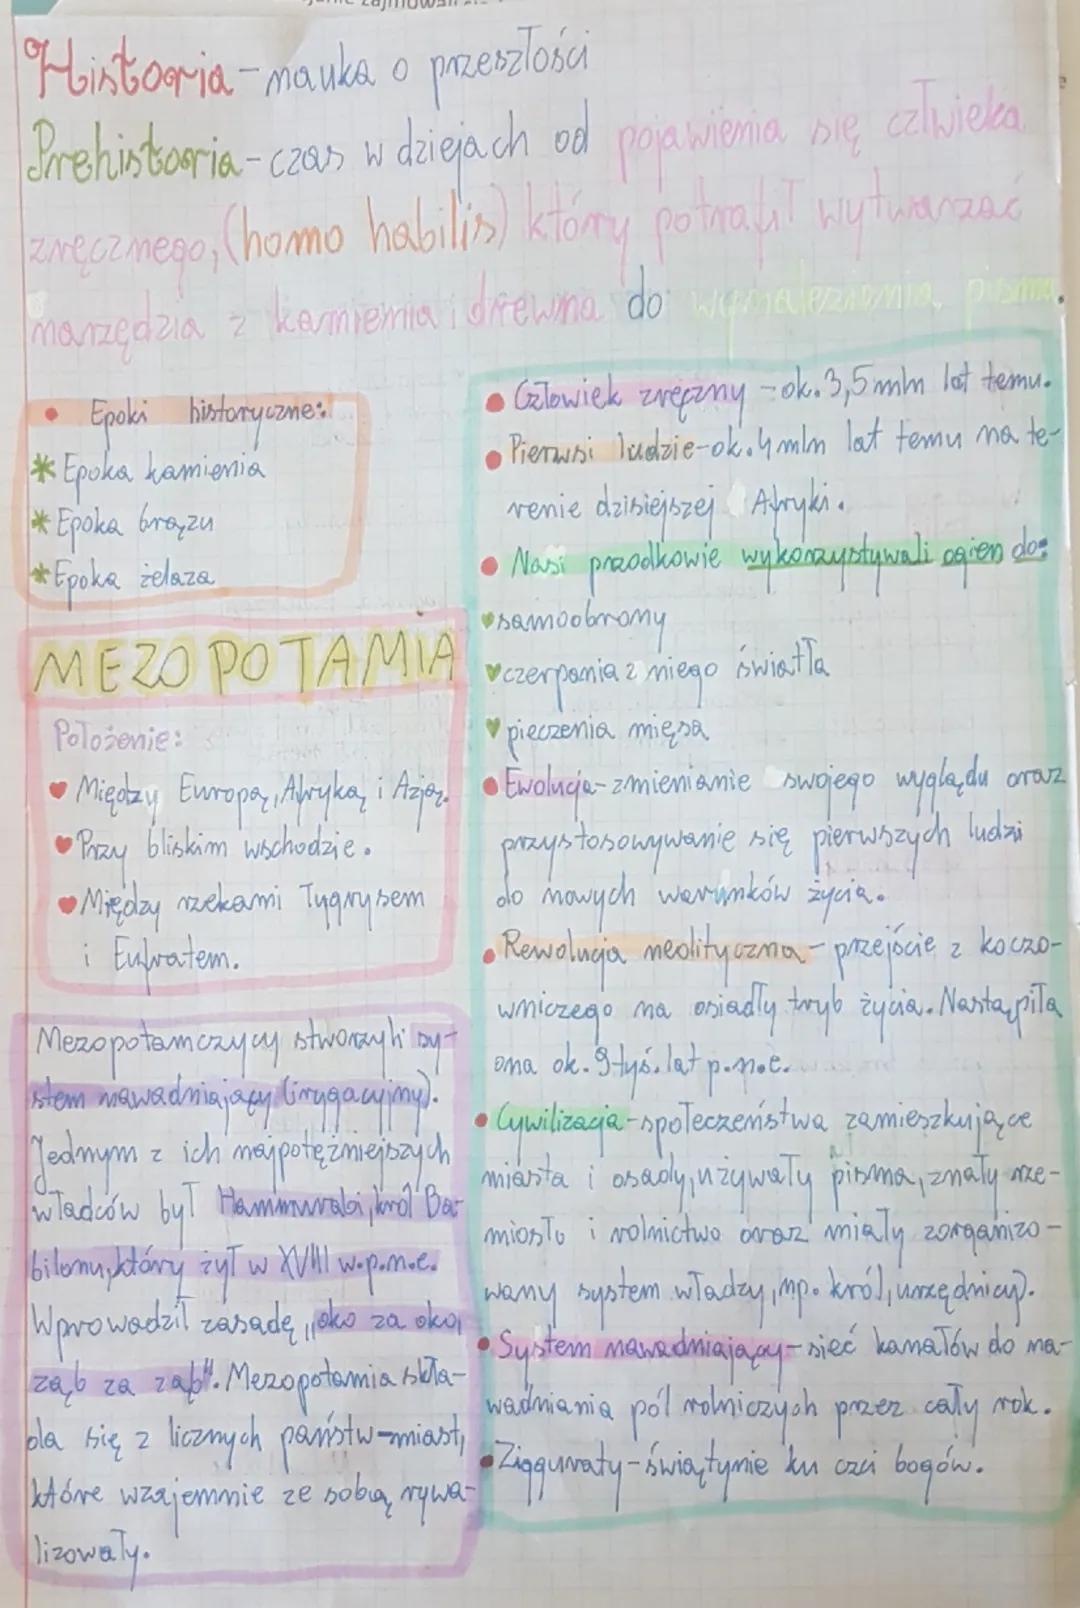 Historia - nauka o przeszłości
Prehistoria - czas w dziejach od pojawienia się człwieka
zręcznego, (homo habilis) który potrafił wytwarzać
narzędzia z kamienia i drewna do wynalezienia pisma.
• Epoki historyczne:
* Epoka kamienia
* Epoka brązu
* Epoka żelaza
MEZOPOTAMIA
Położenie:
♥ Między Europą, Afryką i Azją.
♥ Przy bliskim wschodzie.
♥ Między rzekami Tygrysem
i Eufratem.
Mezopotamczycy stworzyli sy-
stem nawadniający (irygacyjny).
Jednym z ich najpotężniejszych
władców był Hammurabi, król Ba-
bilonu, który żył w XVIII w.p.n.e.
Wprowadził zasadę „oko za oko,
ząb za ząb". Mezopotamia skła-
dła się z licznych państw-miast,
które wzajemnie ze sobą rywa-
lizowały.
• Człowiek zręczny - ok. 3,5 mln lat temu.
• Pierwsi ludzie - ok. 4 mln lat temu na te-
renie dzisiejszej Afryki.
• Nasi przodkowie wykorzystywali ogien do:
♥ samoobrony
♥ czerpania z niego światła
♥ pieczenia mięsa
• Ewolucja - zmienianie swojego wyglądu oraz
przystosowywanie się pierwszych ludzi
do nowych warunków życia.
• Rewolucja neolityczna - przejście z koczo-
wniczego na osiadły tryb życia. Nastąpiła
ona ok. 9 tyś. lat p.n.e.
• Cywilizacja - społeczeństwa zamieszkujące
miasta i osady, używały pisma, znały rze-
miosło i rolnictwo oraz miały zorganizo-
wany system władzy, np. król, urzędnicy).
• System nawadniający - sieć kanałów do na-
wadniania pól rolniczych przez cały rok.
• Zigguraty - świątynie ku czci bogów.